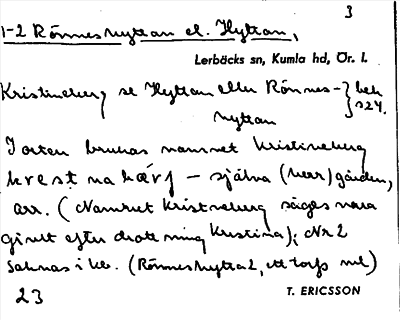 3
1-2 Rönneshyttan el. Hyttan,
Lerbäcks sn, Kumla hd, Ör. l.
Kristineberg se Hyttan eller Rönnes- } bek
hyttan s24.
I orten brukas namnet Kristineberg
– själva (herr)gården,
arr. (Namnet Kristineberg säges vara
givet efter drottning Kristina); Nr 2
saknas i kb. (Rönneshytta 2, ett torp nul)
23
T. ERICSSON